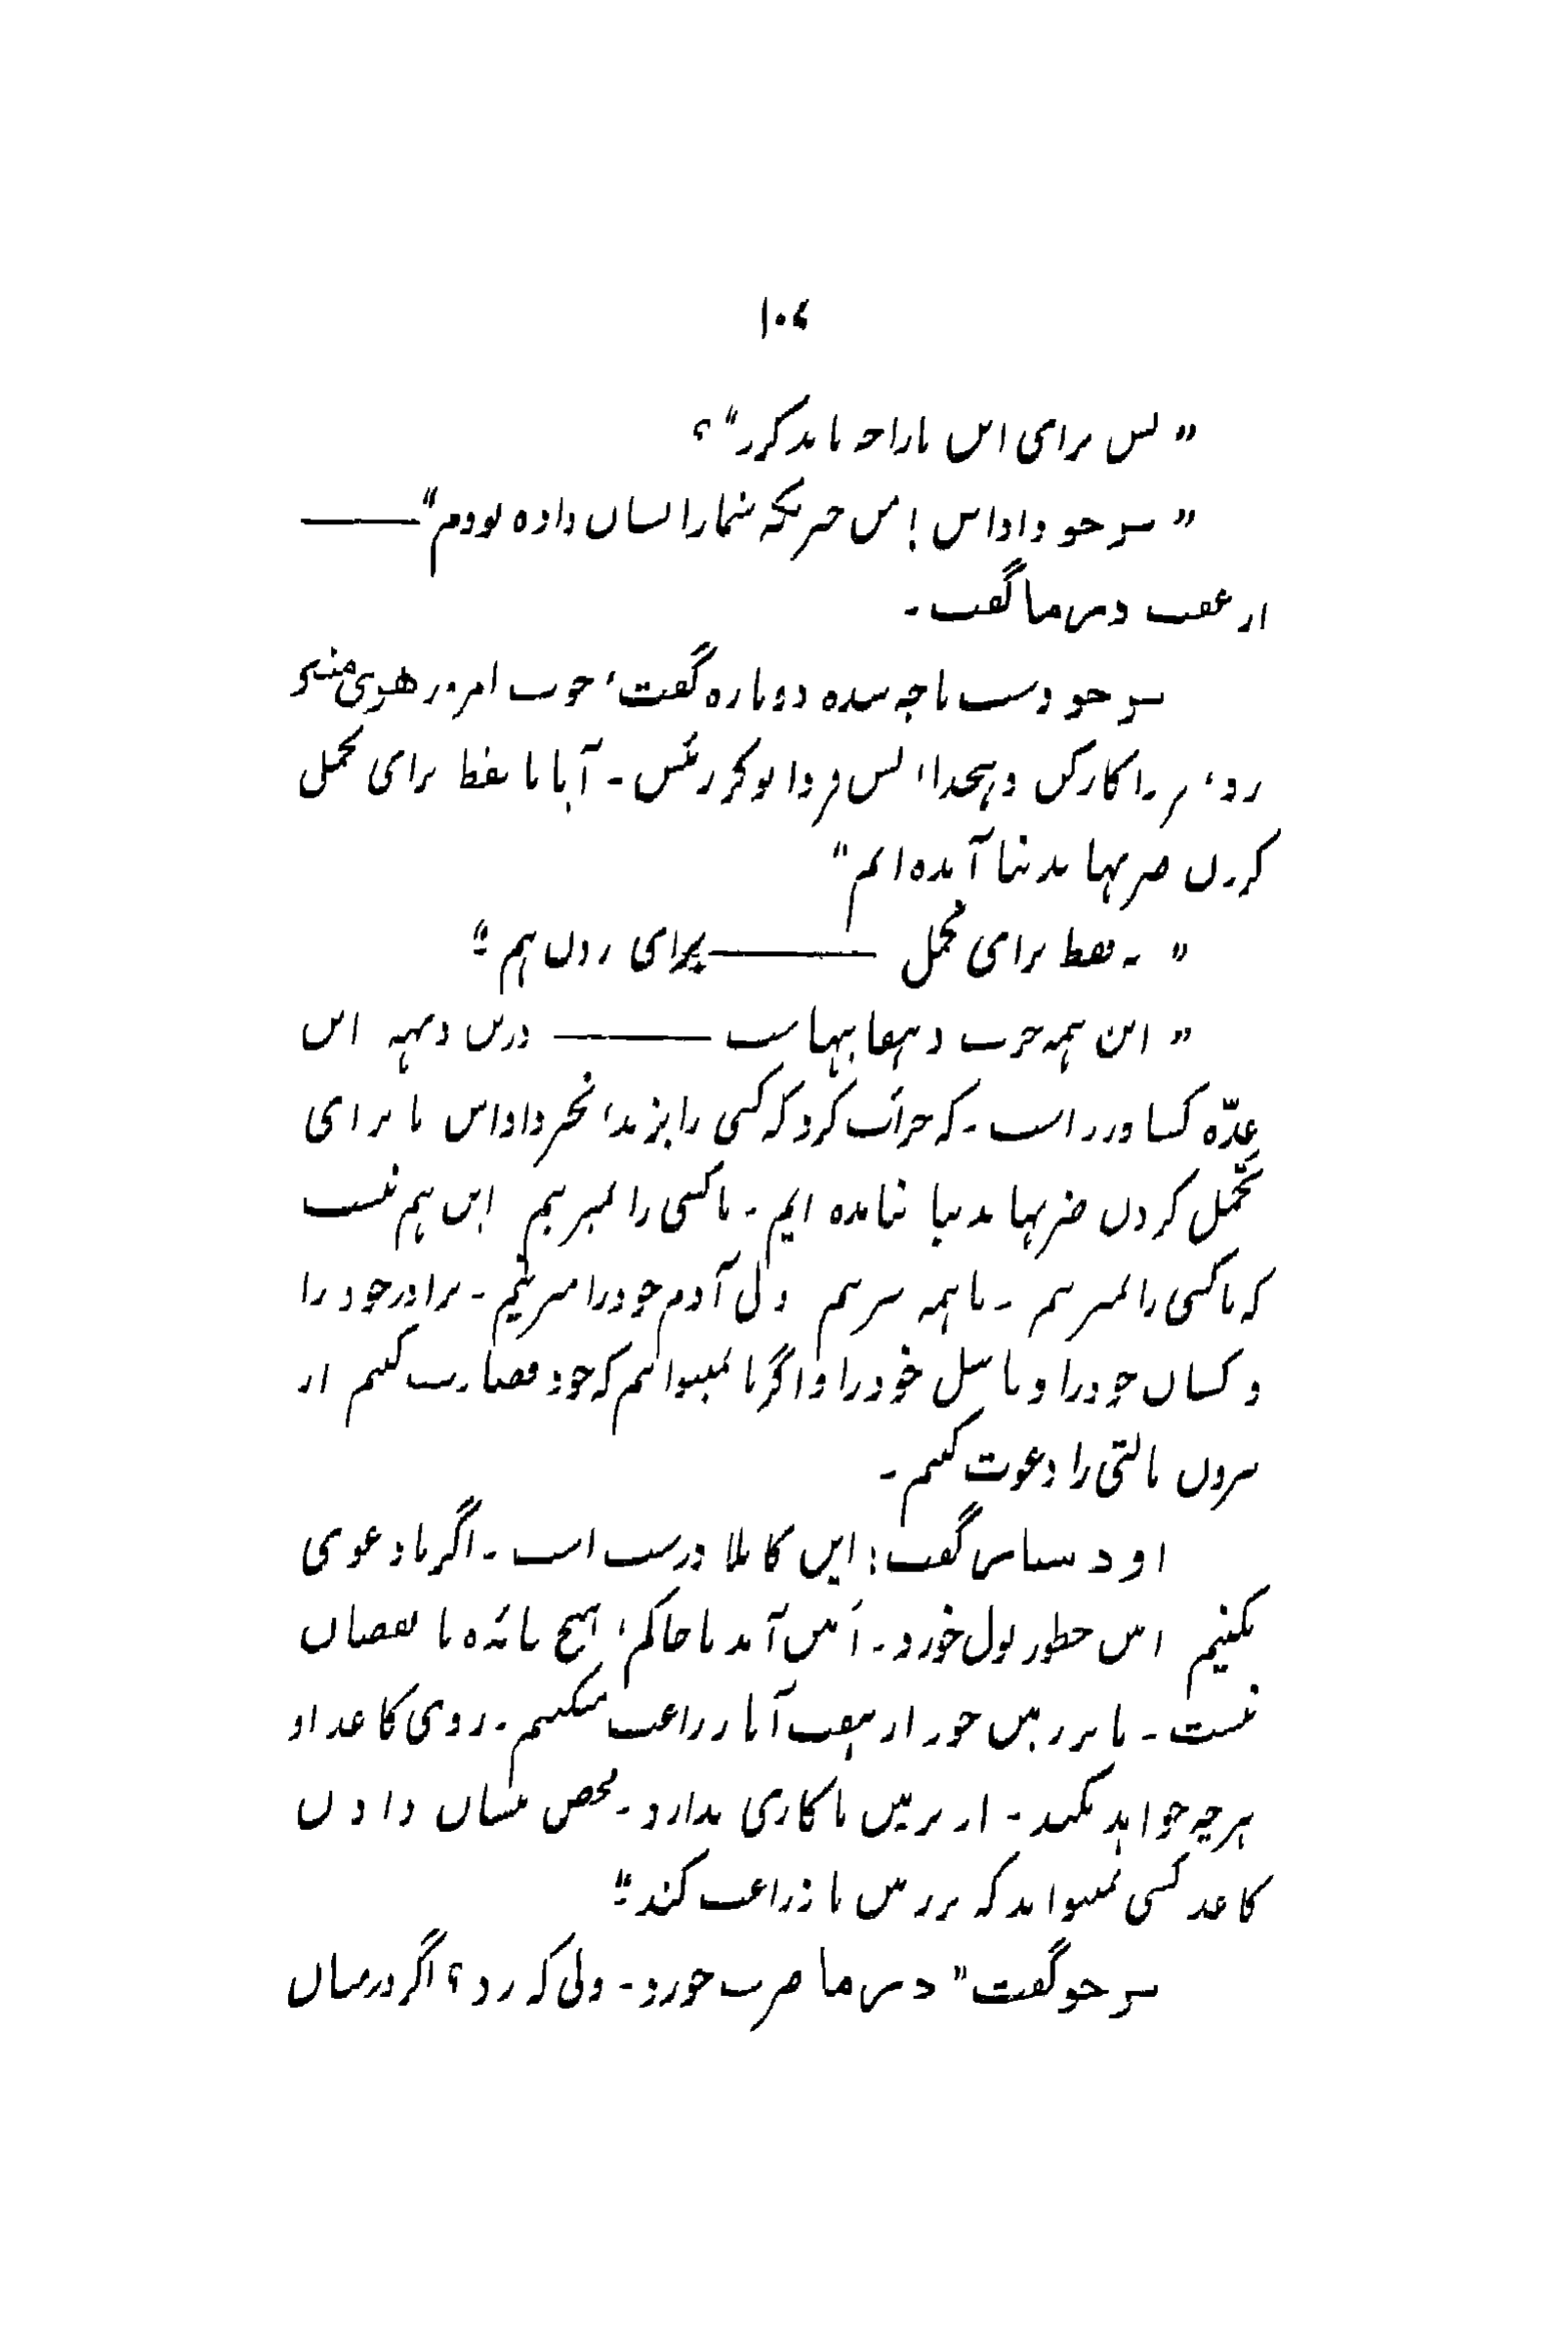 ۱۰۴
" پس برای این ما را چه باید کرد"؟
" سرجو داداش! من چریکه شما را نشان داده بودم" ——
از عقب دهرما گفت -
سرجو دست پاچه شده دوباره گفت، خوب امروز هری
زد، را کارکن و بخدا، پس فردا نوکر رئیس - آیا ما فقط برای تحمل
کردن ضربها بدنیا آمده ایم"
" نه فقط برای تحمل —— برای زدن هم"
" این همه حرف دهقانیهاست —— درین دهمه این
عدّه کشاورز است - که جرأت کرد که کسی را بزند، نخیر داداش ما برای
تحمّل کردن ضربها بدنیا نیامده ایم - ما کسی را نمیزنیم این هم نیست
که ما کسی را نمیزنیم - ما همه میزنیم ولی آدم خود را میزنیم - برادر خود را
و کسان خود را و ما مثل خود را و اگر ما نمیتوانیم که خود قضاوت کنیم از
بیرون مالتی را دعوت کنیم -
او گفت: این کاملا درست است - اگر ما دعوی
نکنیم امین چطور پول خورد - امین آمد یا حاکم، هیچ فائده یا نقصان
نیست - ما بر زمین خود از هفت آبا زراعت میکنیم - روی کاغذ او
هرچه خواهد بکند - از زمین ما کاری ندارد - محض نشان دادن
کاغذ کسی نمیتواند که بر زمین ما زراعت کند"
سرجو گفت" دهرما ضرب خورد - ولی که زد؟ اگر درمیان